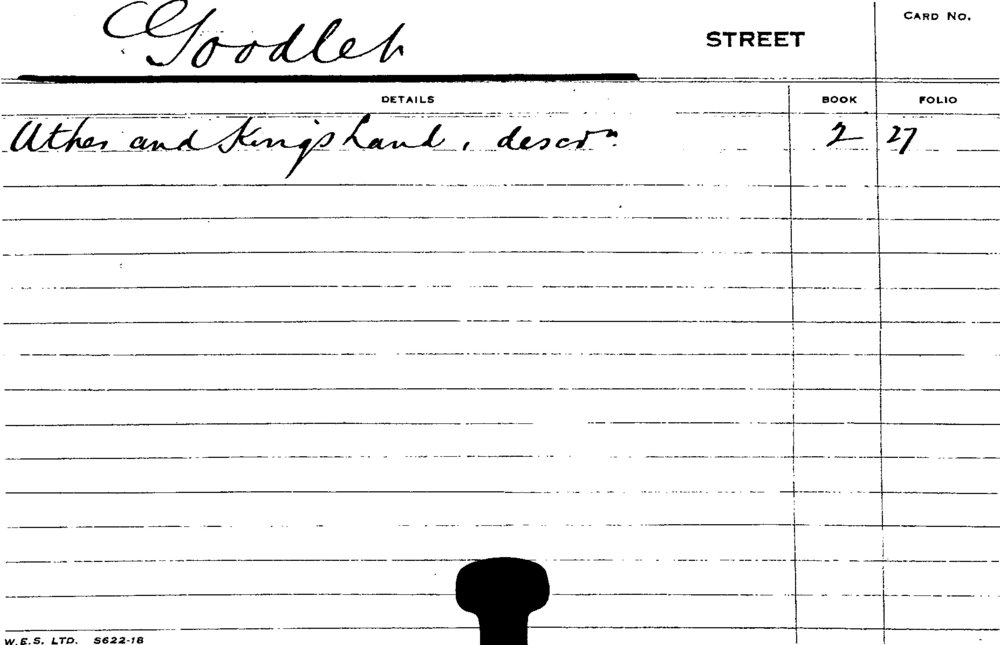 Goodlet STREET CARD NO.
DETAILS BOOK FOLIO
Uther and Kingsland, descrn. 2 27
W.E.S. LTD. S622-18